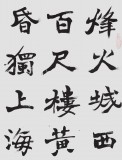 烽火城西
百尺樓黃
昏獨上海